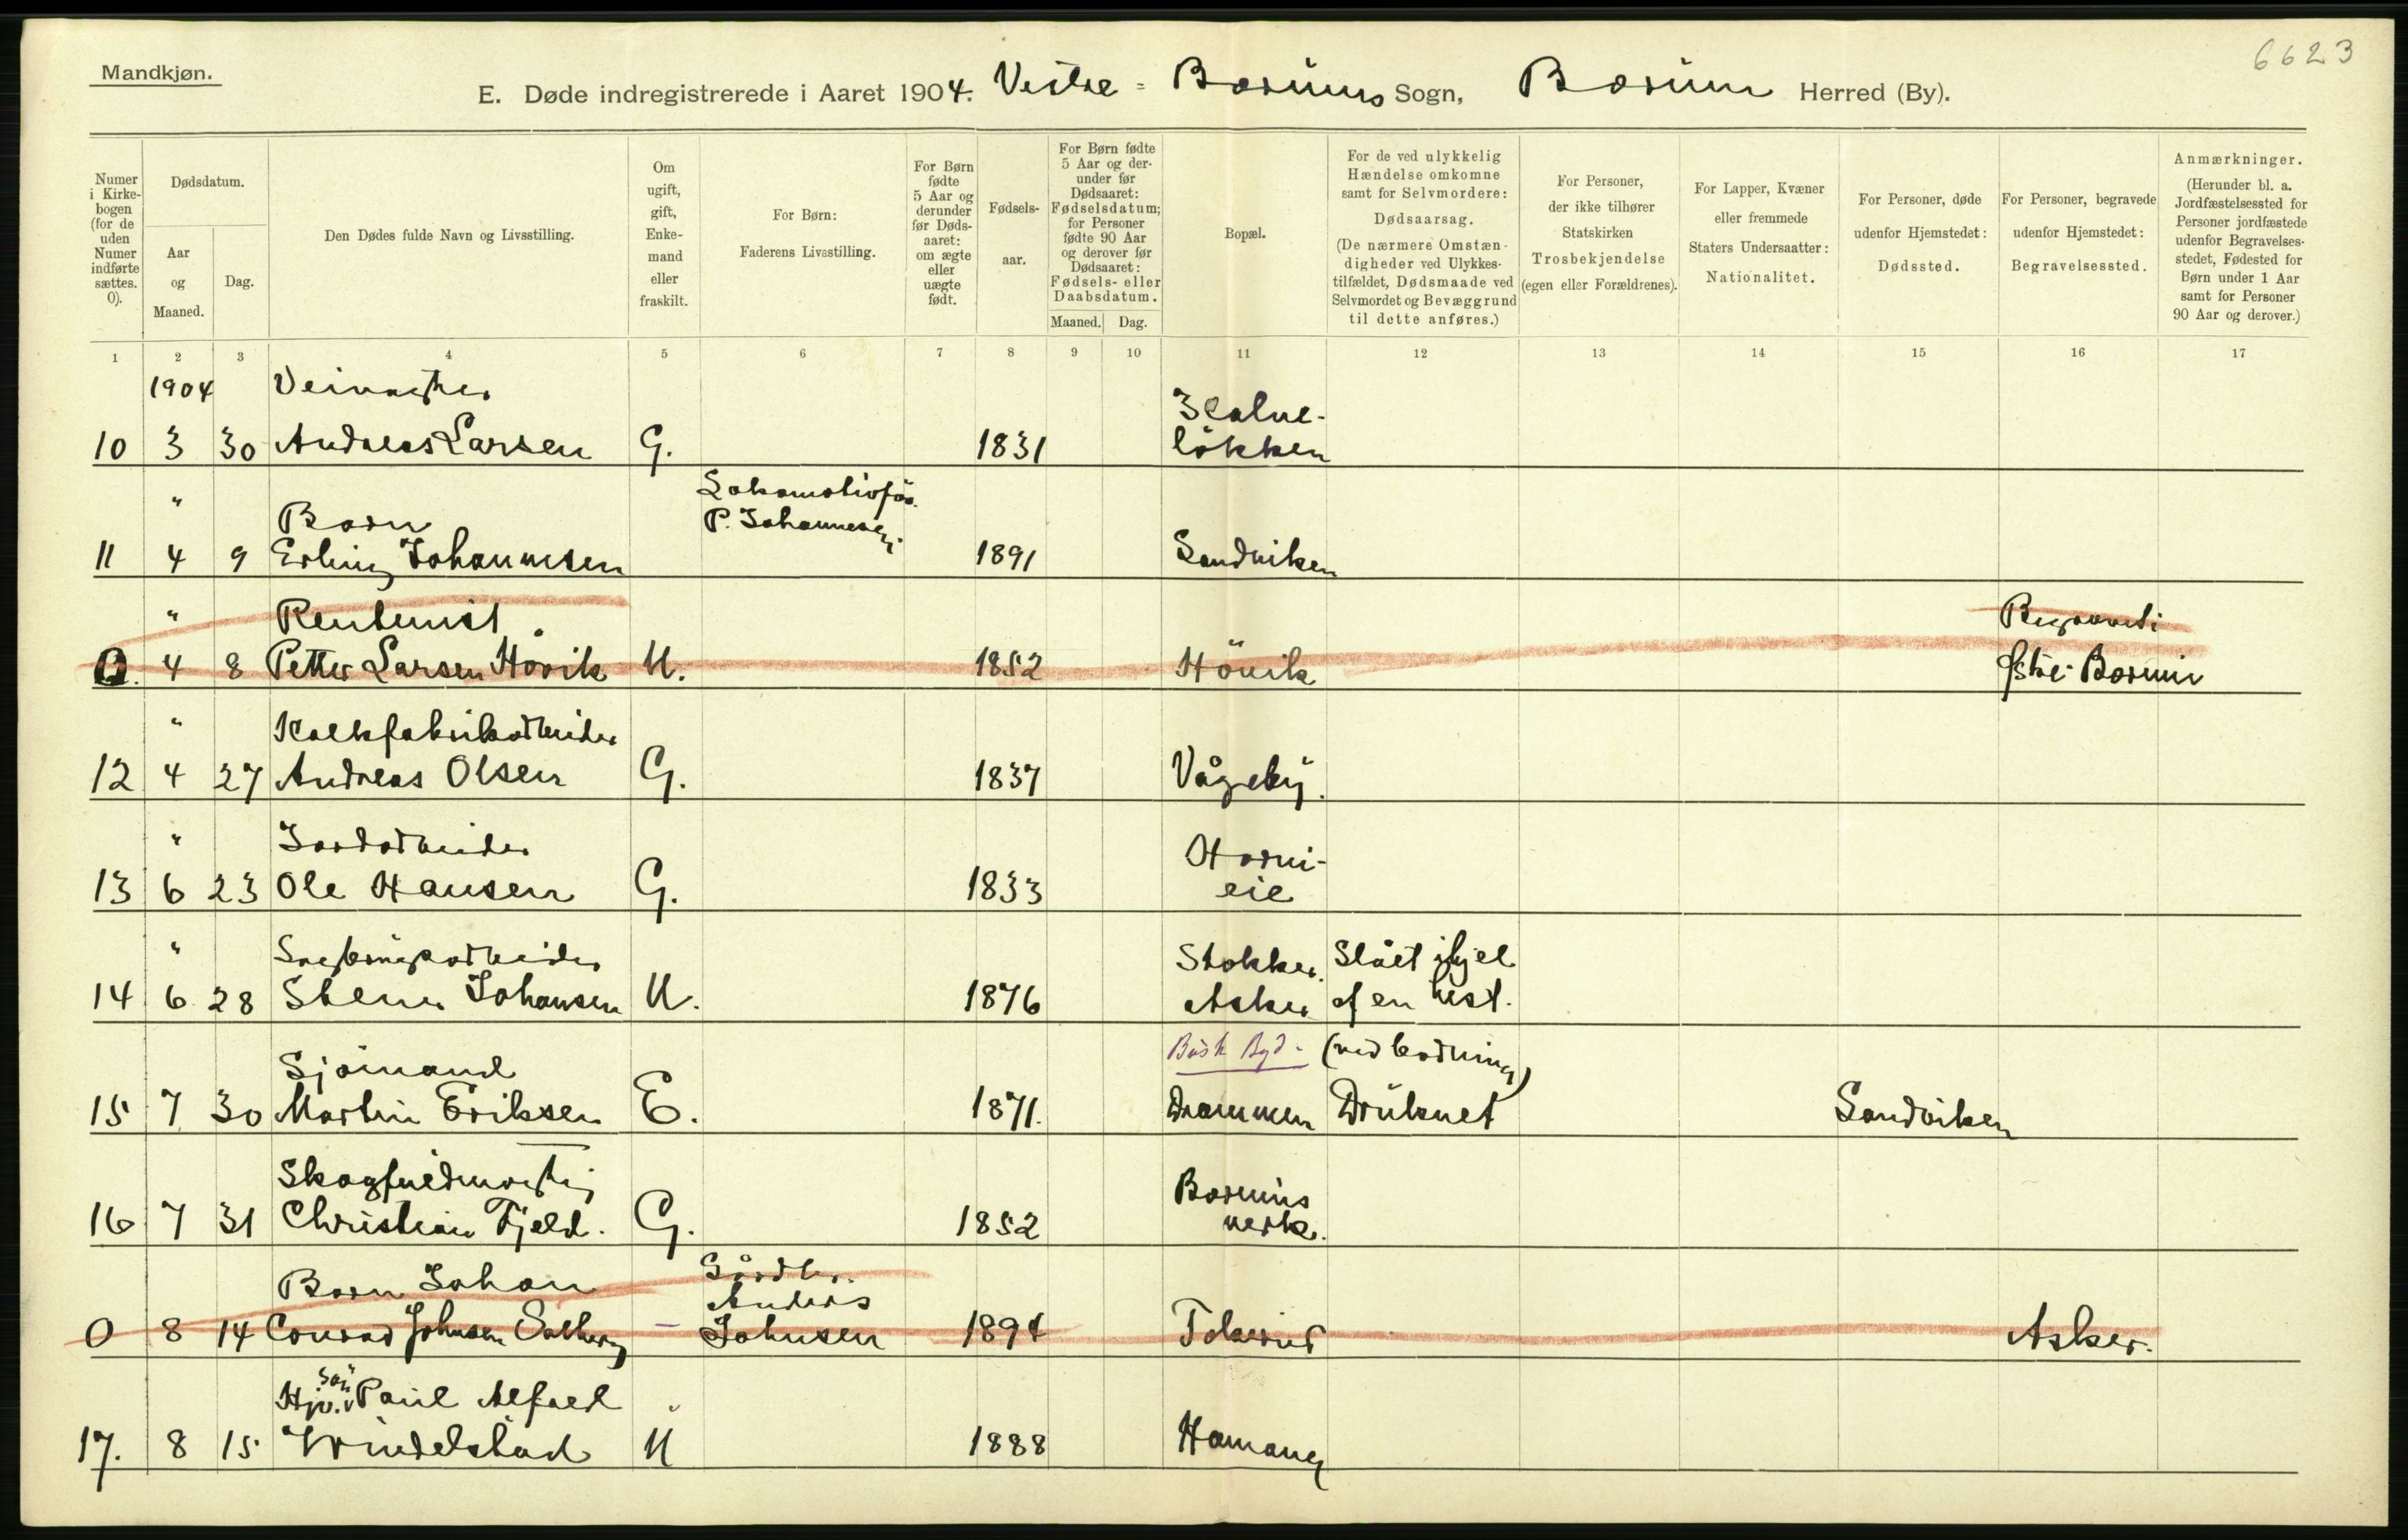 6623
Mandkjøn.
E. Døde indregistrerede i Aaret 1904. Vestre-Bærums Sogn, Bærum Herred (By).
Numer i Kirkebogen (for de uden Numer indførte sættes. 0).
Dødsdatum.
Aar og Maaned.
Dag.
Den Dødes fulde Navn og Livsstilling.
Om ugift, gift, Enkemand eller fraskilt.
For Børn: Faderens Livsstilling.
For Børn fødte 5 Aar og derunder før Dødsaaret: om ægte eller uægte født.
Fødselsaar.
For Børn fødte 5 Aar og derunder før Dødsaaret: Fødselsdatum; for Personer fødte 90 Aar og derover før Dødsaaret: Fødsels- eller Daabsdatum.
Maaned. Dag.
Bopæl.
For de ved ulykkelig Hændelse omkomne samt for Selvmordere: Dødsaarsag. (De nærmere Omstændigheder ved Ulykkestilfældet, Dødsmaade ved Selvmordet og Bevæggrund til dette anføres.)
For Personer, der ikke tilhører Statskirken Trosbekjendelse (egen eller Forældrenes).
For Lapper, Kvæner eller fremmede Staters Undersaatter: Nationalitet.
For Personer, døde udenfor Hjemstedet: Dødssted.
For Personer, begravede udenfor Hjemstedet: Begravelsessted.
Anmærkninger. (Herunder bl. a. Jordfæstelsessted for Personer jordfæstede udenfor Begravelsesstedet, Fødested for Børn under 1 Aar samt for Personer 90 Aar og derover.)
1 2 3 4 5 6 7 8 9 10 11 12 13 14 15 16 17
1904 Veivogter
10 3 30 Andreas Larsen G. 1831 Kalveløkken
" Barn Lokomotivfør. P. Johannesen
11 4 9 Erling Johannesen 1891 Sandviken
" Rentenist Begravet i
0. 4 8 Petter Larsen Høvik U. 1852 Høvik Østre-Bærum
" Kalkfabrikarbeider
12 4 27 Andreas Olsen G. 1837 Vågeby.
" Jordarbeider
13 6 23 Ole Hansen G. 1833 Horni-eie
" Sagbrugsarbeider Stokker. Slået ihjel
14 6 28 Stener Johansen U. 1876 Asker af en hest.
Sjømand Busk Byd. (ved badning)
15 7 30 Martin Eriksen E. 1871. Drammen Druknet Sandviken
Skogfuldmægtig Bærums
16 7 31 Christian Fjeld. G. 1852 verk.
Barn Johan Gårdbr. Anders
0 8 14 Conrad Johnsen Solberg – Johnsen 1894 Tokerud Asker.
søn Paul Alfred "
17. 8 15 Windelstad U 1888 Hamang